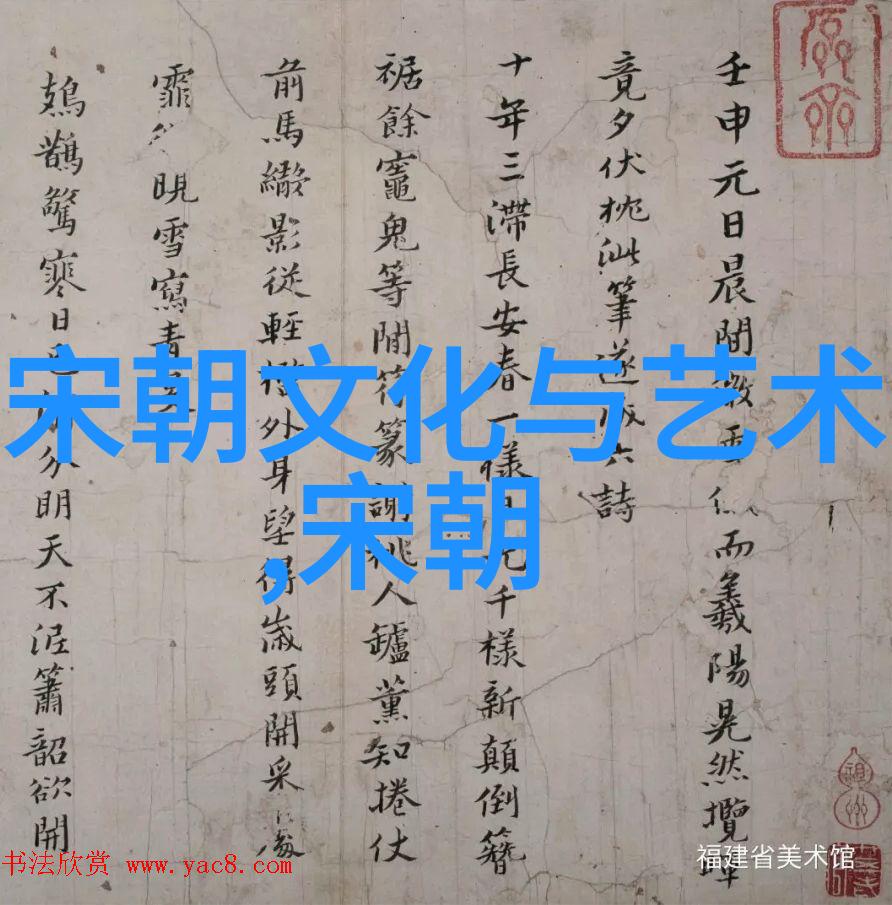 壬申元日晨間微雲而羲陽晃然攬
竟夕伏枕泚筆遂成六詩
十年三滯長安春一樣千樣新顛倒簪
裾餘竈鬼等閒符篆謝桃人鑪薰知捲仗
前馬繖影從輕外身望得歲頭開采
霏晛雪寫青
鳷鵲驚寒日分明天不涩簫韶欲開
宋朝文化与艺术
,宋朝
书法欣赏 www.yac8.com
福建省美术馆